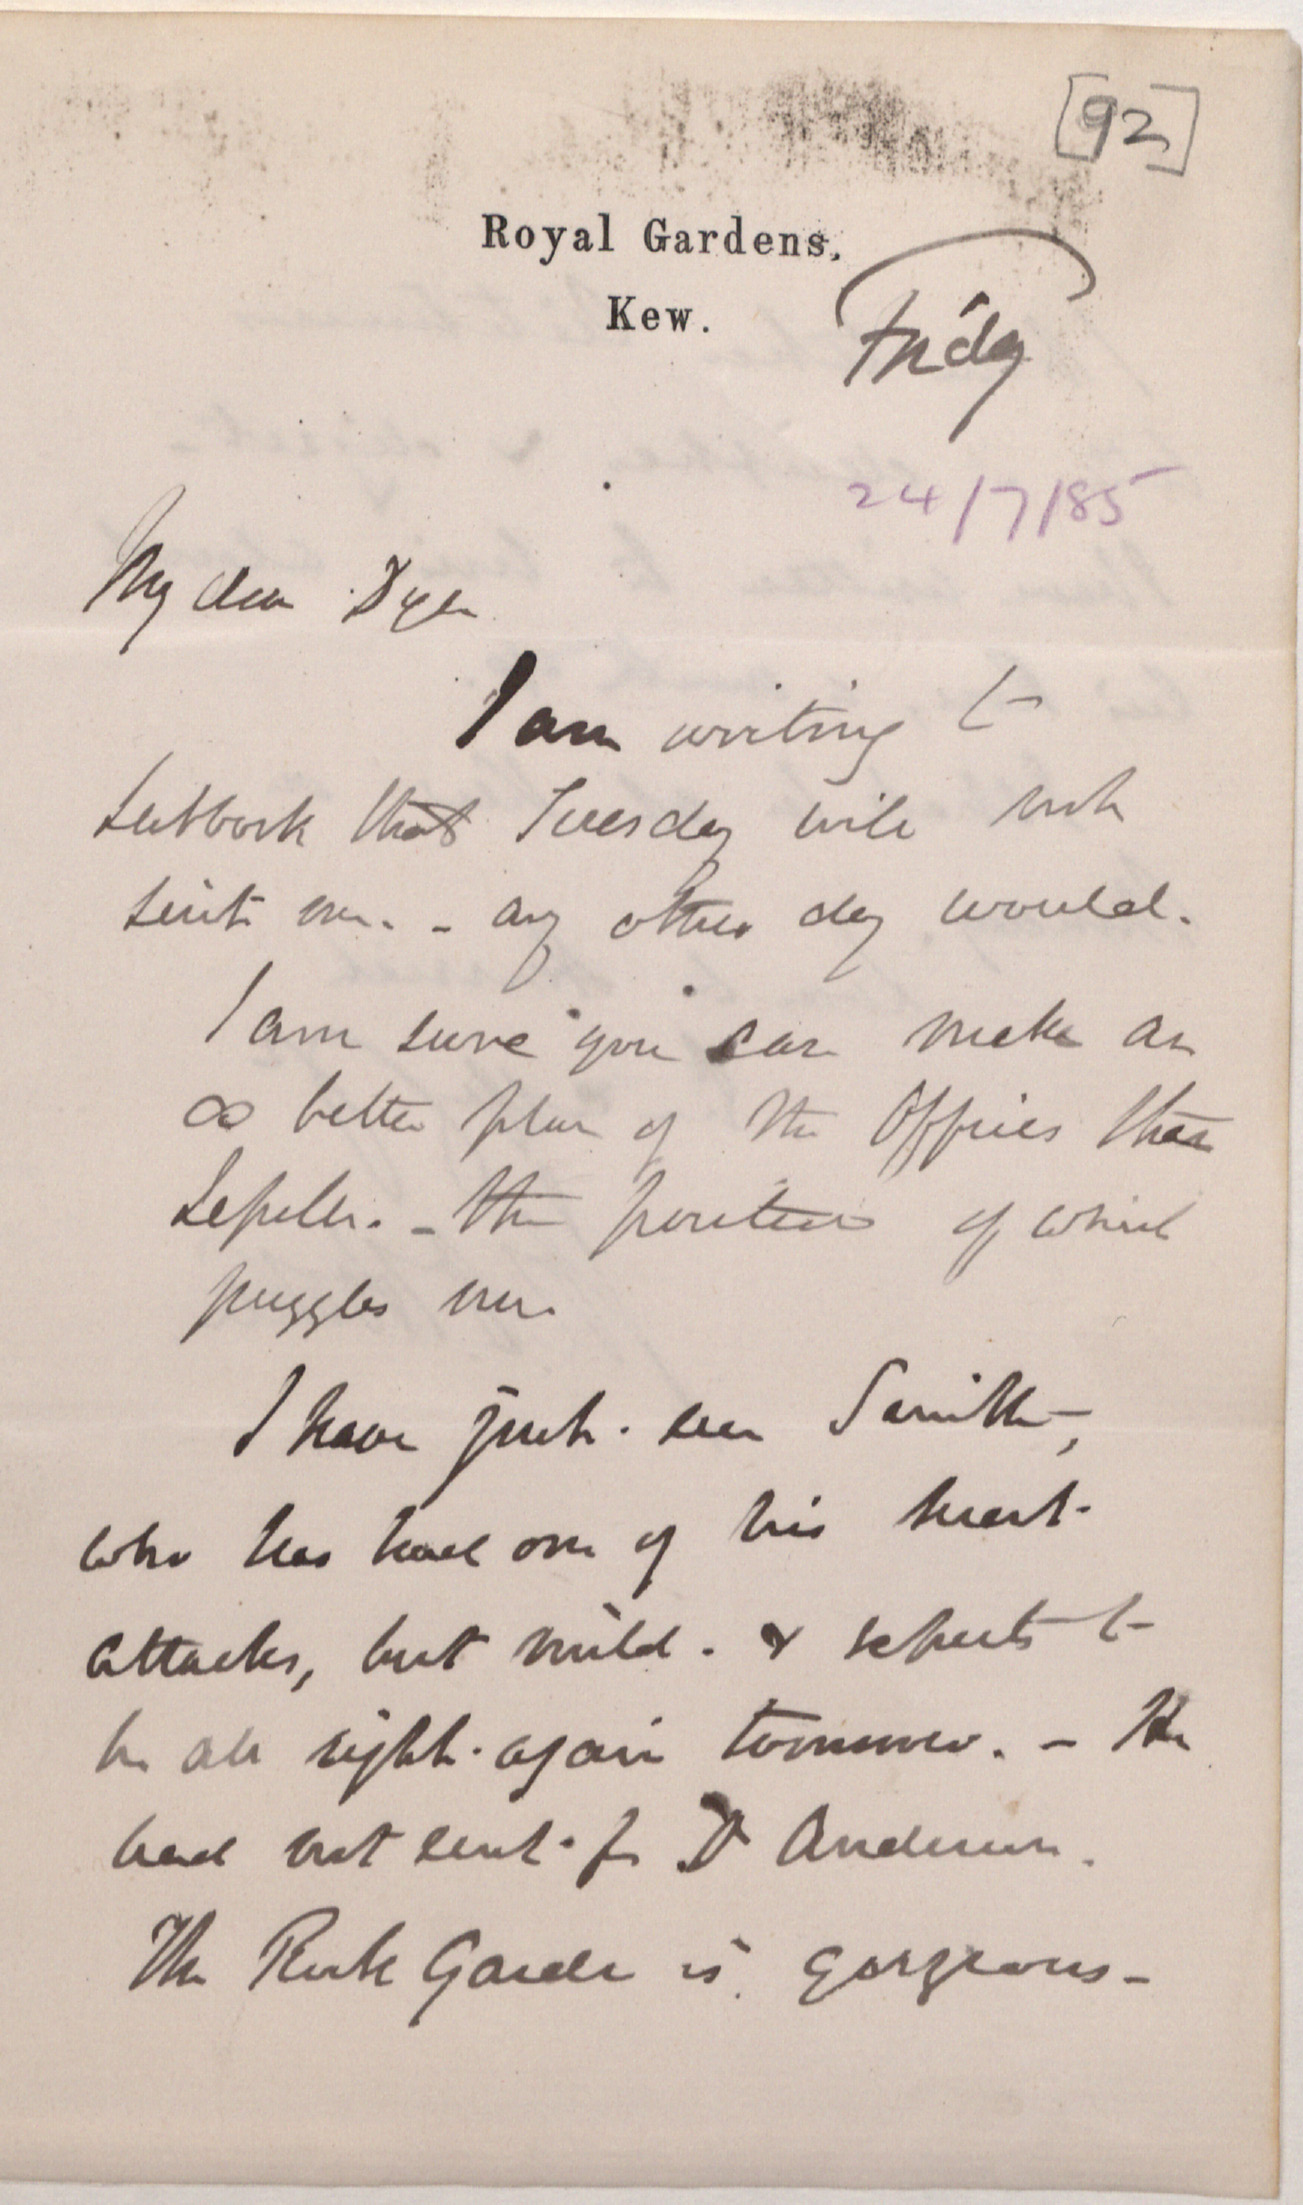 [92]
Royal Gardens,
Kew.
Friday
24/7/85
My dear Dyer
I am writing to
Lubbock that Tuesday will not
suit me. - any other day would.
I am sure you can make an
∞ better plan of the Offices than
- the position of which
puzzles me.
I have just seen Smith,
who has had one of his heart
attacks, but mild. & expects to
be all right again tomorrow. - He
had not sent for Dr Anderson.
The Rock Garden is gorgeous -